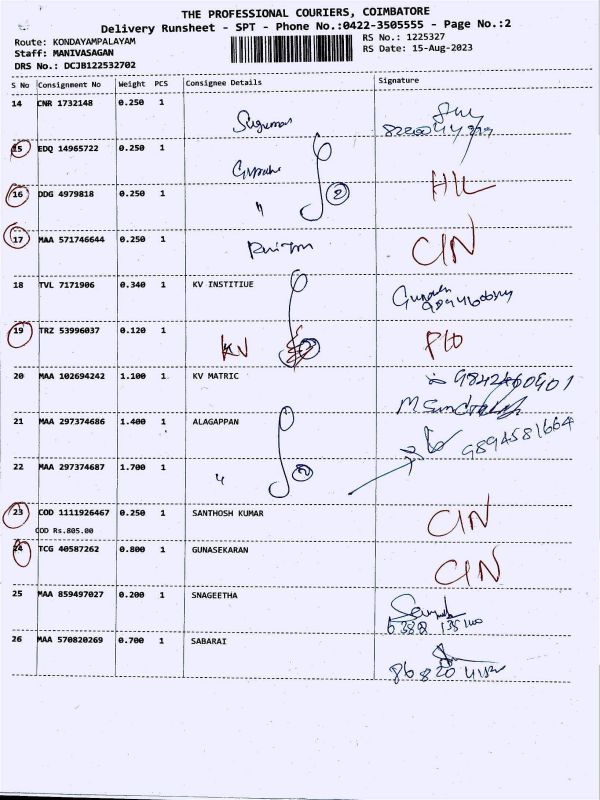 THE PROFESSIONAL COURIERS, COIMBATORE
Delivery Runsheet - SPT - Phone No.:0422-3505555 - Page No.:2
Route: KONDAYAMPALAYAM
Staff: MANIVASAGAN
DRS No.: DCJB122532702
RS No.: 1225327
RS Date: 15-Aug-2023
S No Consignment No Weight PCS Consignee Details Signature
14 CNR 1732148 0.250 1
15 EDQ 14965722 0.250 1
16 DDG 4979818 0.250 1 " 2 HIL
17 MAA 571746644 0.250 1 CIN
18 TVL 7171906 0.340 1 KV INSTITIUE
19 TRZ 53996037 0.120 1 KV
20 MAA 102694242 1.100 1 KV MATRIC
21 MAA 297374686 1.400 1 ALAGAPPAN 9894581664
22 MAA 297374687 1.700 1 "
23 COD 1111926467 0.250 1 SANTHOSH KUMAR CIN
COD Rs.805.00
24 TCG 40587262 0.800 1 GUNASEKARAN CIN
25 MAA 859497027 0.200 1 SNAGEETHA
26 MAA 570820269 0.700 1 SABARAI